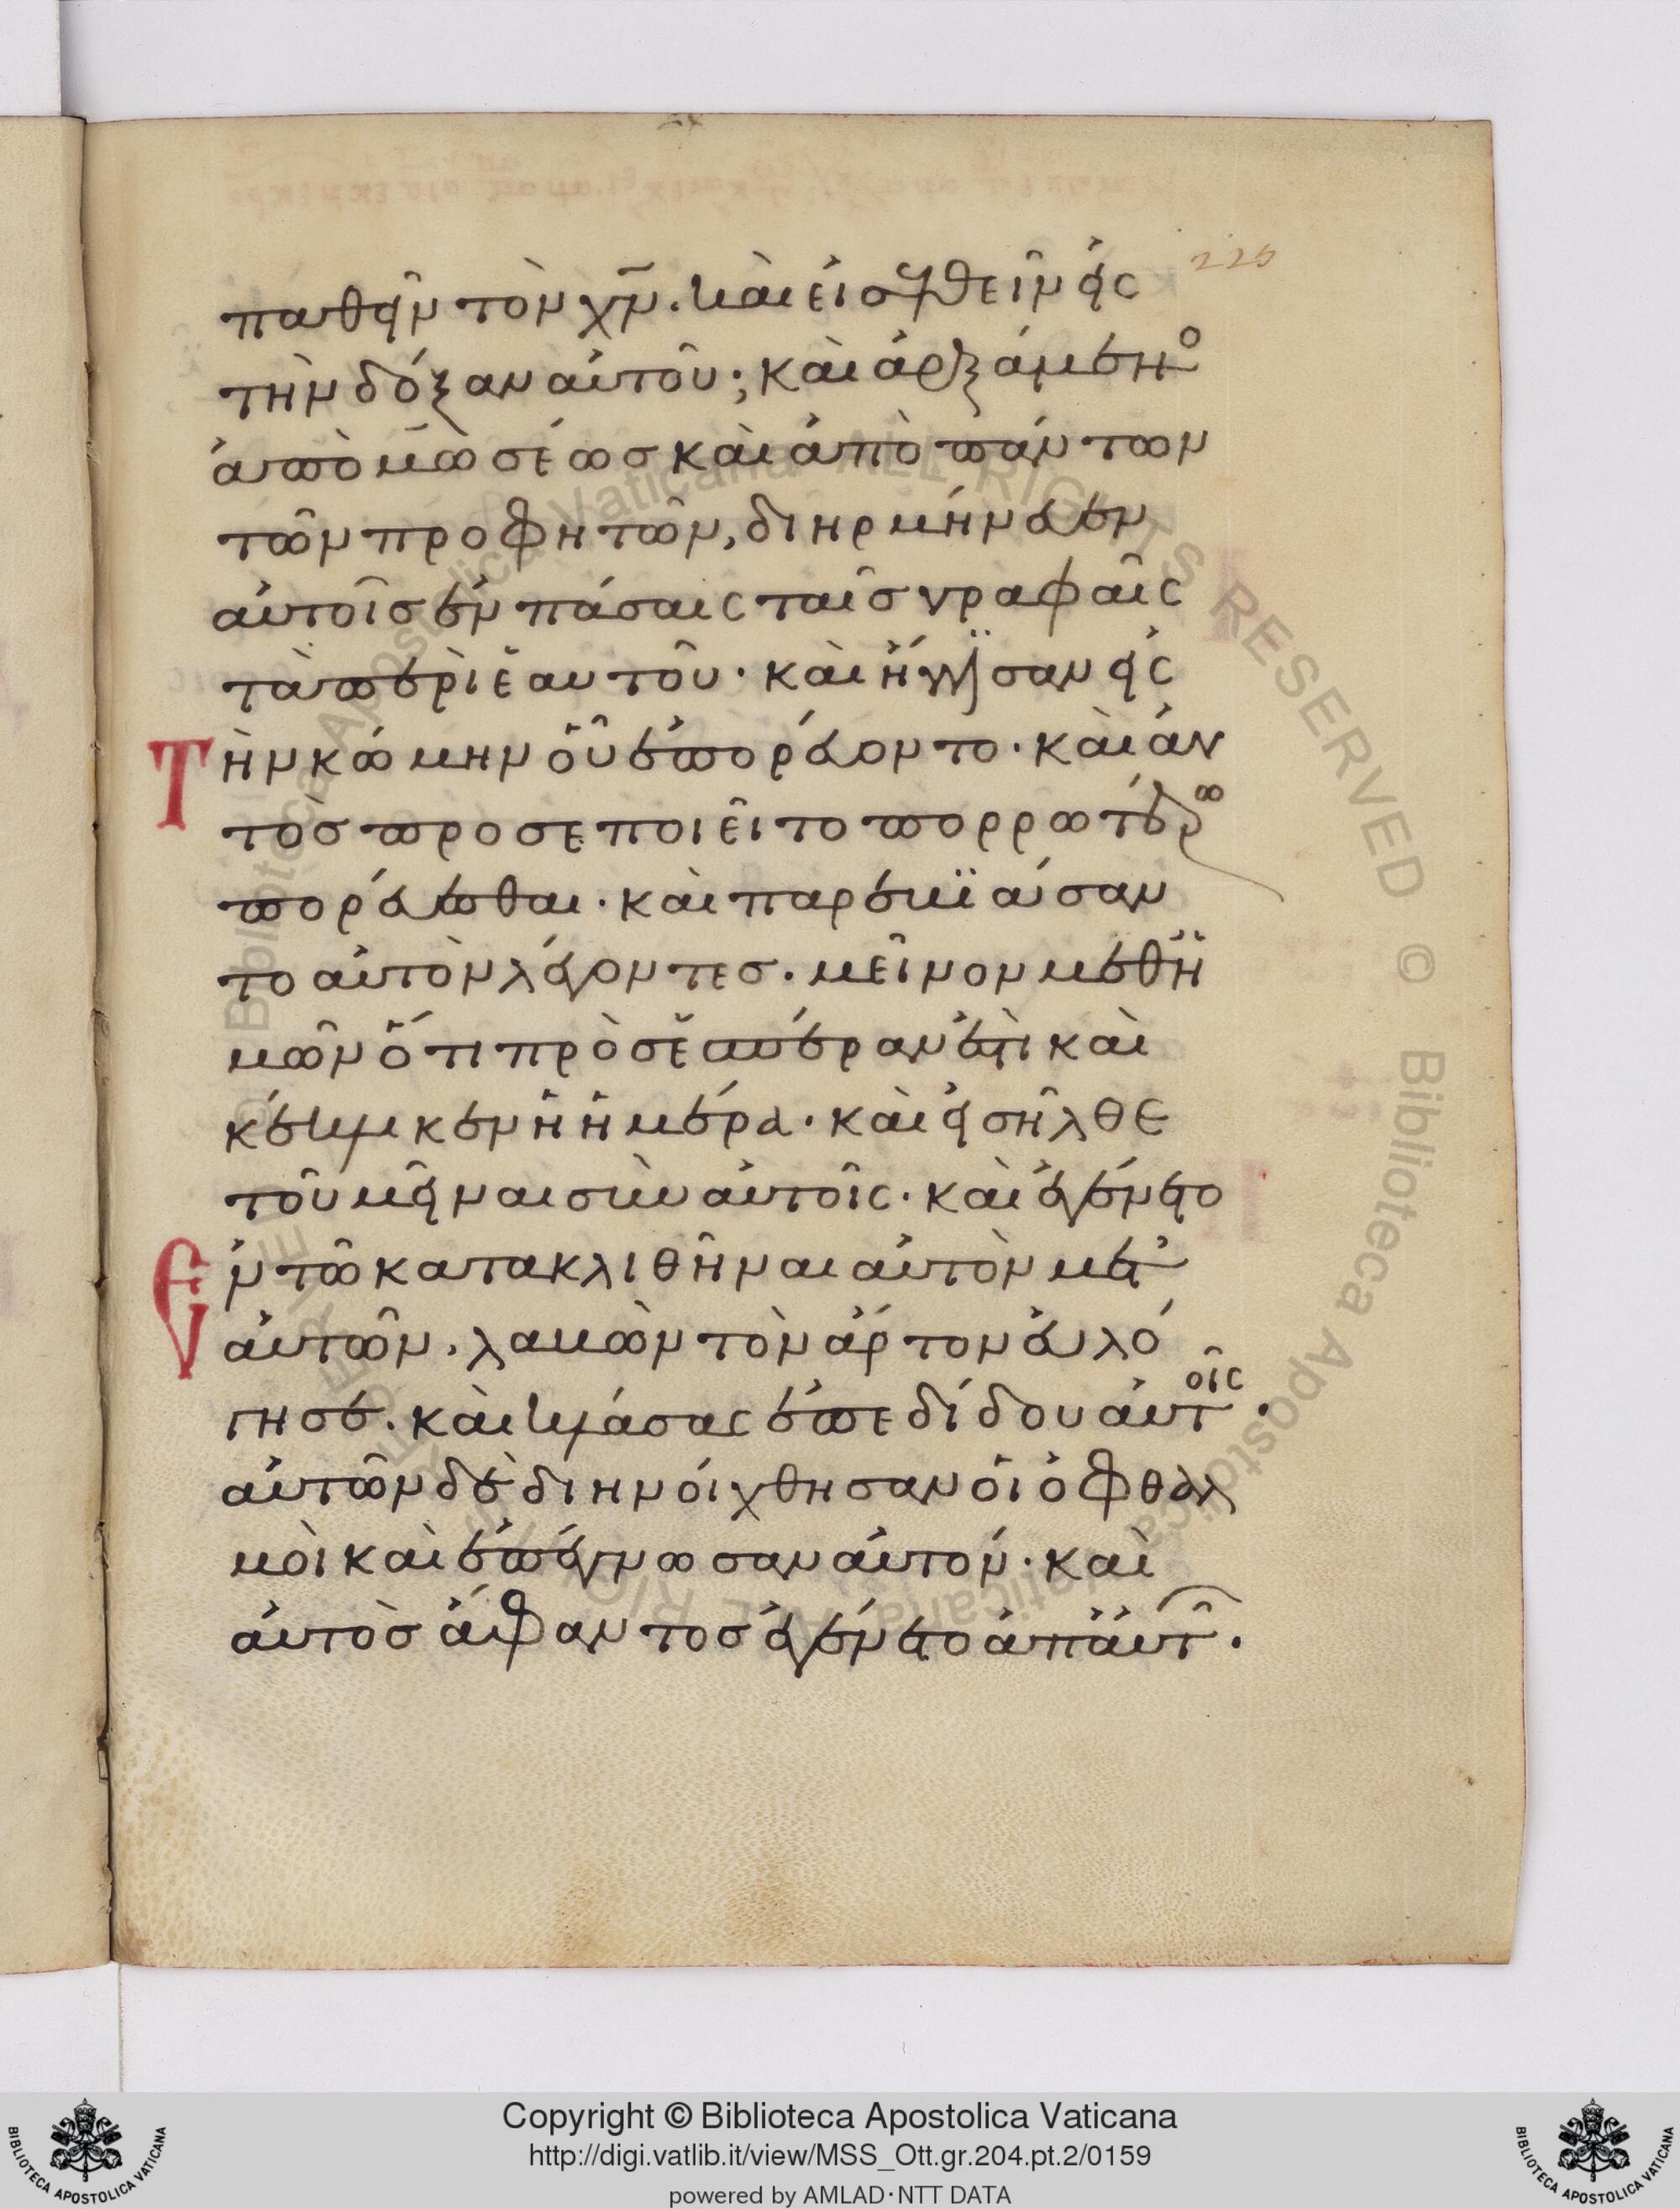 225
παθεῖν τὸν χ̅ν̅. καὶ εἰσελθεῖν εἰς
τὴν δόξαν αὐτοῦ; καὶ ἀρξάμενο
ἀπὸ μωσέωσ καὶ ἀπὸ πάντων
τῶν προφητῶν, διηρμήνευεν
αὐτοῖσ ἐν πάσαις ταῖσ γραφαῖς
τὰ περὶ ἑαυτοῦ· καὶ ἤγγισαν εἰς
Τὴν κώμην οὗ ἐπορεύοντο· καὶ αὐ
τὸσ προσεποιεῖτο πορρωτέρω
πορεύεσθαι· καὶ παρεβιάσαν
το αὐτὸν λέγοντεσ. μεῖνον μεθ ἡ
μῶν ὅτι πρὸσ ἑσπέραν ἐστὶ καὶ
κέκλικεν ἡ ἡμέρα· καὶ εἰσῆλθε
τοῦ μεῖναι σὺν αὐτοῖς· καὶ ἐγένετο
Ἐν τῶ κατακλιθῆναι αὐτὸν μετ
αὐτῶν. λαβὼν τὸν ἄρτον εὐλό
γησε. καὶ κλάσας ἐπεδίδου αὐτοῖς.
αὐτῶν δὲ διηνοίχθησαν οἱ ὀφθαλ
μοὶ καὶ ἐπέγνωσαν αὐτόν· καὶ
αὐτὸσ ἄφαντοσ ἐγένετο ἀπ αὐτῶν.
© Biblioteca Apostolica Vaticana ALL RIGHTS RESERVED
Copyright © Biblioteca Apostolica Vaticana
http://digi.vatlib.it/view/MSS_Ott.gr.204.pt.2/0159
powered by AMLAD·NTT DATA
BIBLIOTECA APOSTOLICA VATICANA
BIBLIOTECA APOSTOLICA VATICANA